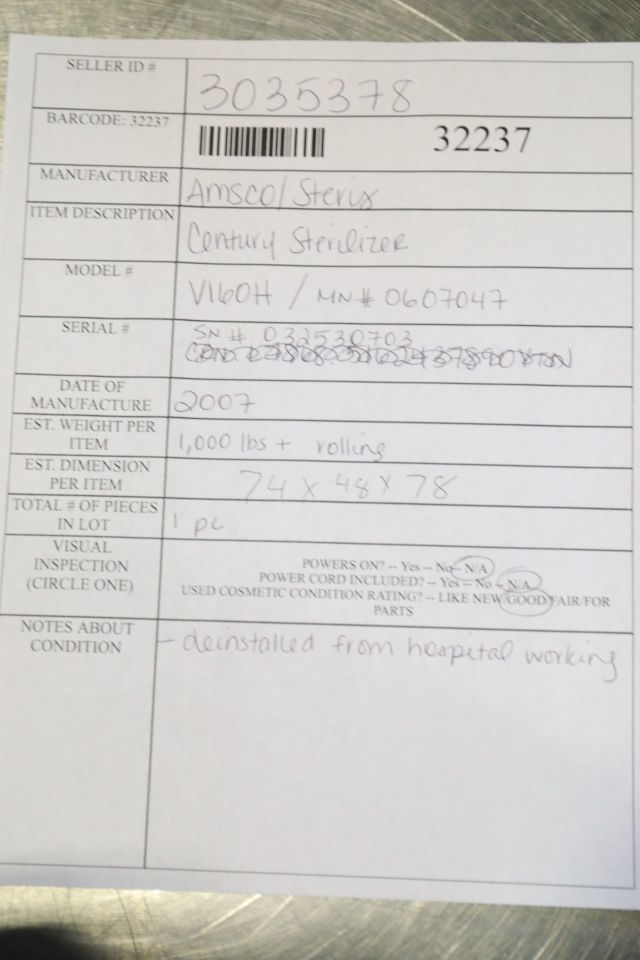 SELLER ID # 3035378
BARCODE: 32237 32237
MANUFACTURER Amsco/Steris
ITEM DESCRIPTION Century Sterilizer
MODEL # V160H / MN# 0607047
SERIAL # SN # 032530703
DATE OF MANUFACTURE 2007
EST. WEIGHT PER ITEM 1,000 lbs + rolling
EST. DIMENSION PER ITEM 74 x 48 x 78
TOTAL # OF PIECES IN LOT 1 pc
VISUAL INSPECTION (CIRCLE ONE)
POWERS ON? -- Yes -- No -- N/A
POWER CORD INCLUDED? -- Yes -- No -- N/A
USED COSMETIC CONDITION RATING? -- LIKE NEW GOOD FAIR/FOR
PARTS
NOTES ABOUT CONDITION - deinstalled from hospital working